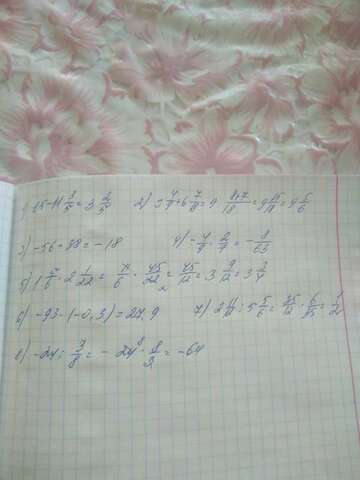 1) 15-11 3/5 = 3 2/5 2) 3 4/9 + 6 7/18 = 9 8+7/18 = 9 15/18 = 9 5/6
3) -56 + 38 = -18 4) -4/9 · 2/7 = -8/63
5) 1 1/6 · 2 1/22 = 7/6 · 45/22 = 3 9/12 = 3 3/4
6) -93 · (-0,3) = 27,9 7) 2 11/12 : 5 5/6 = 35/12 · 6/35 = 1/2
8) -24 : 3/8 = -24 · 8/3 = -64